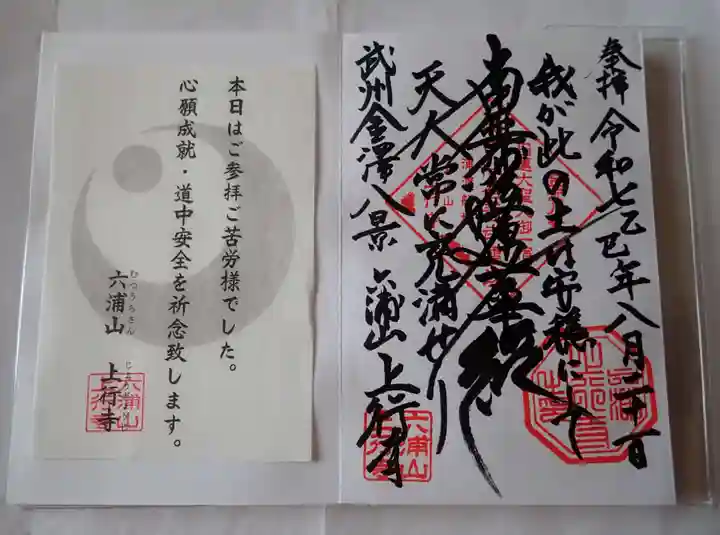 奉拝 令和七乙巳年八月二十一日
我が此の土は安穏にして
南無妙法蓮華経
天人常に充満せり
武州金澤八景 六浦山 上行寺
六浦山
上行寺
本日はご参拝ご苦労様でした。
心願成就・道中安全を祈念致します。
むつうらさん
六浦山 上行寺
六浦山
上行寺